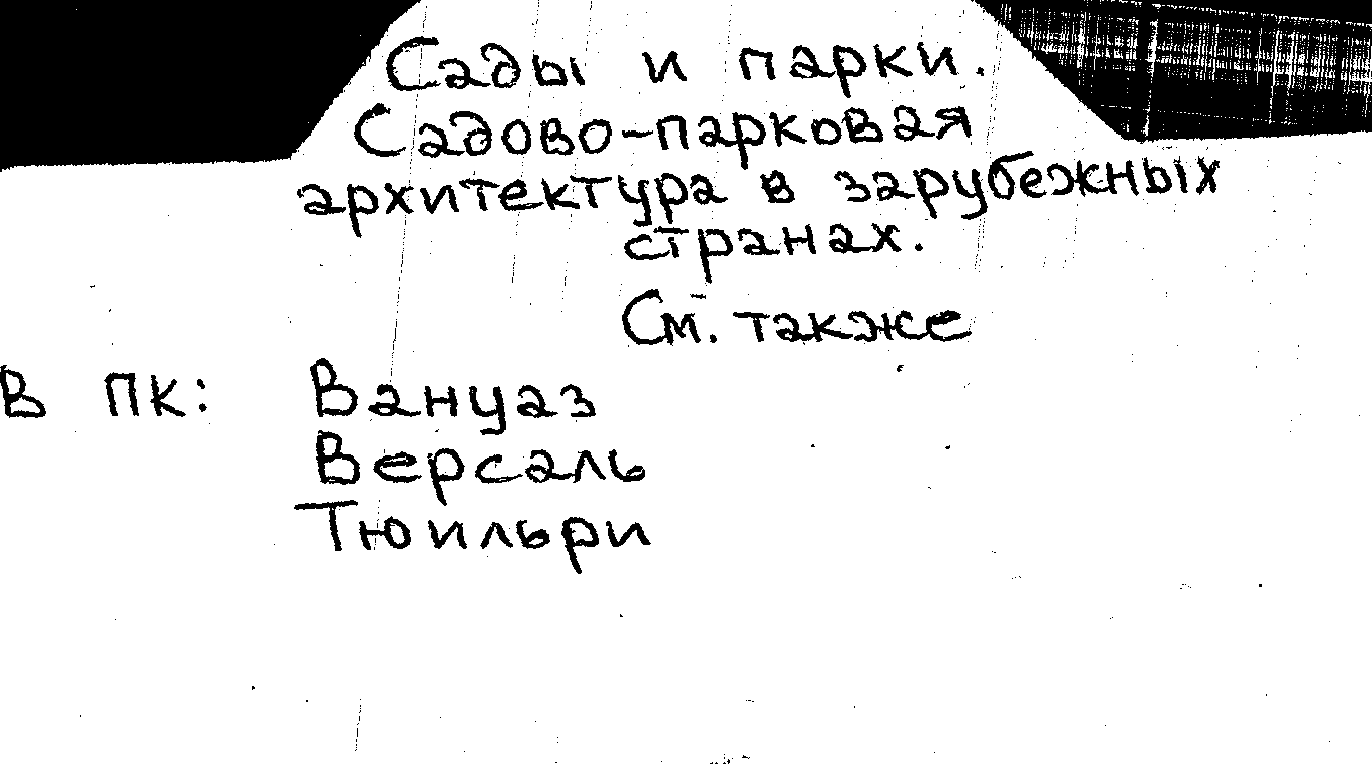 Сады и парки.
Садово-парковая
архитектура в зарубежных
странах.
См. также
В ПК: Вануаз
Версаль
Тюильри